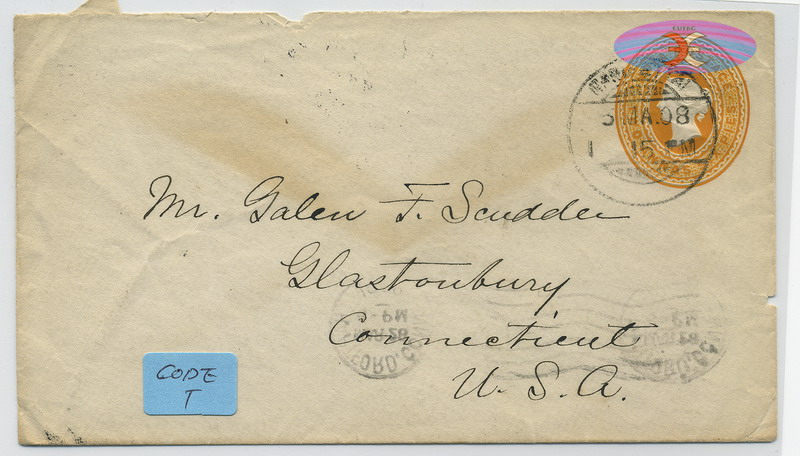 CUTEC
5 MA.08
1 15 PM
Mr. Galen F. Scudder
Glastonbury
Connecticut
U.S.A.
CODE
T